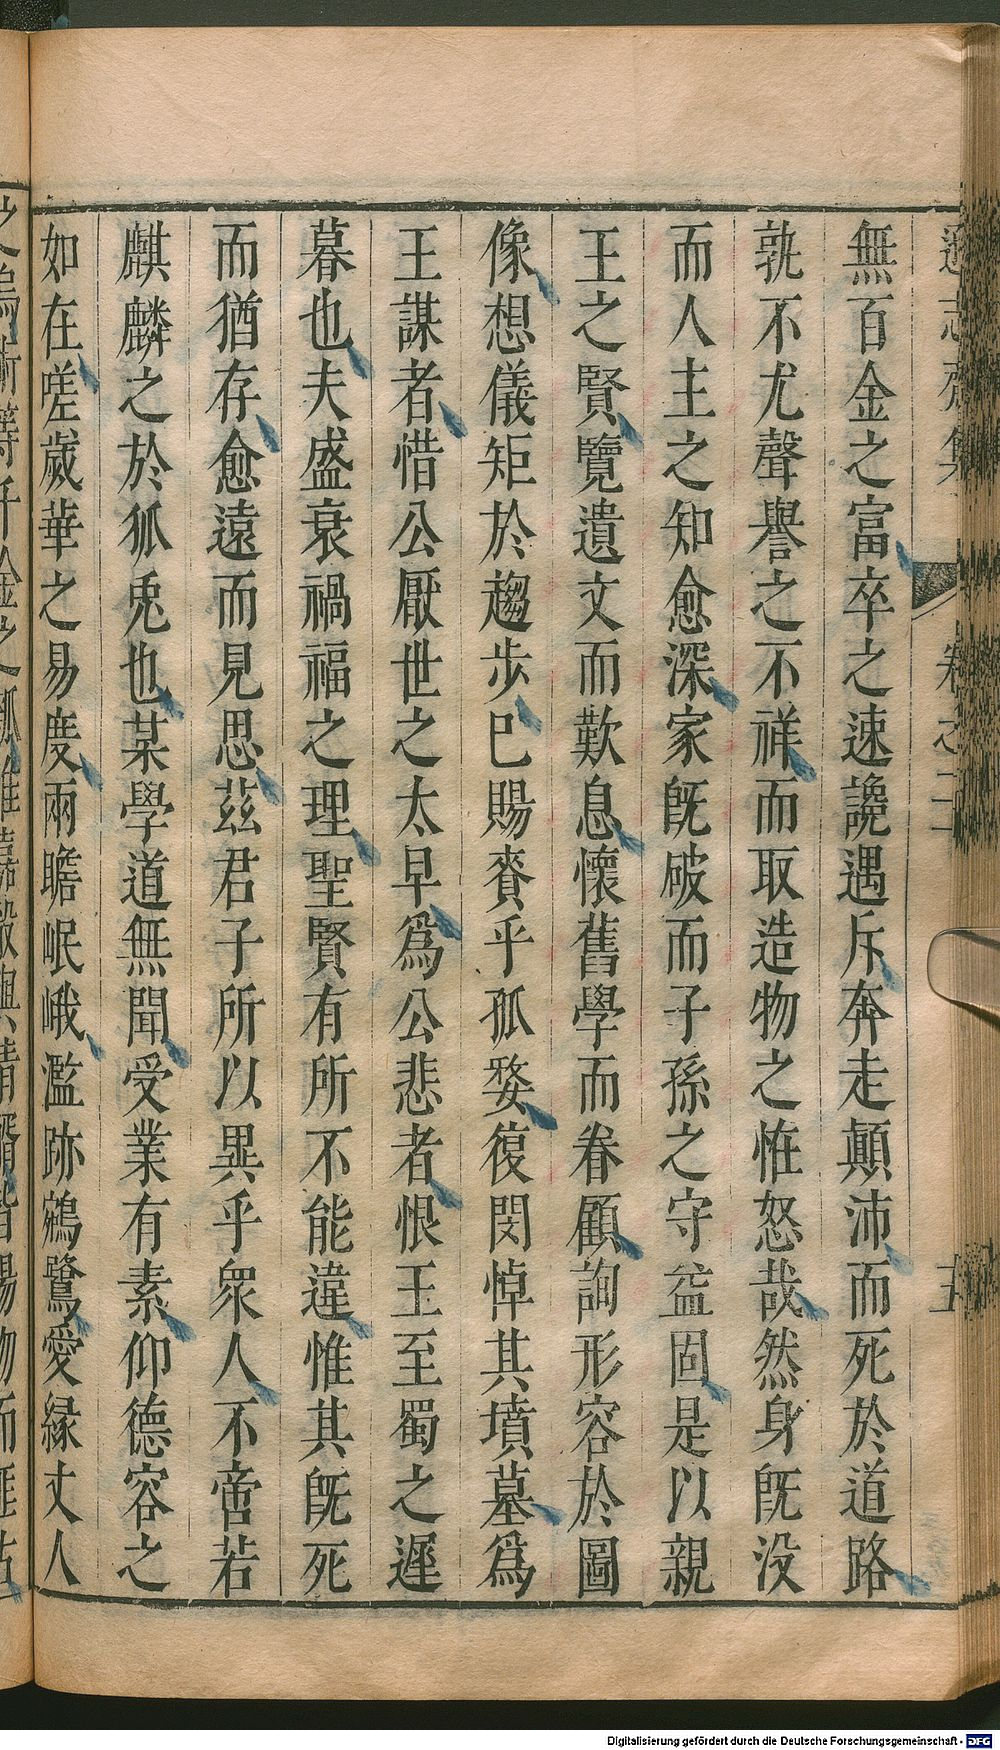 遜志齋集 卷之二十 五
無百金之富卒之速讒遇斥奔走顛沛而死於道路
孰不尤聲譽之不祥而取造物之恠怒哉然身旣没
而人主之知愈深家旣破而子孫之守益固是以親
王之賢覽遺文而歎息懷舊學而眷顧詢形容於圖
像想儀矩於趨步巳賜賚乎孤嫠復閔悼其墳墓爲
王謀者惜公厭世之太早爲公悲者恨王至蜀之遲
暮也夫盛衰禍福之理聖賢有所不能違惟其旣死
而猶存愈遠而見思茲君子所以異乎衆人不啻若
麒麟之於狐兎也某學道無聞受業有素仰德容之
如在嗟歲華之易度兩瞻岷峨濫跡鵷鷺愛緣丈人
Digitalisierung gefördert durch die Deutsche Forschungsgemeinschaft - DFG